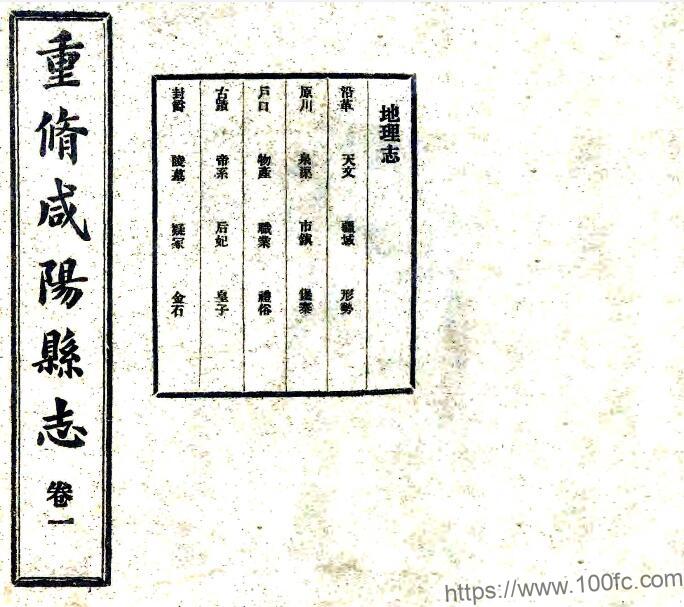 重脩咸陽縣志 卷一
地理志
沿革 天文 疆域 形勢
原川 市鎮 堡寨
戶口 物產 職業 禮俗
古蹟 帝系 后妃 皇子
封爵 陵墓 疑冢 金石
https://www.100fc.com